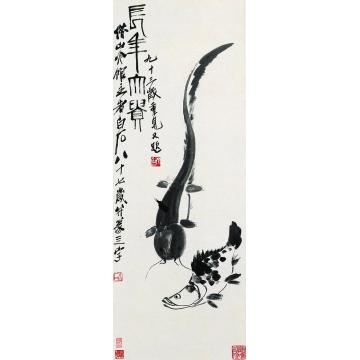 長年大貴
借山吟館主者白石八十七歲并篆三字
九十三歲重見又題